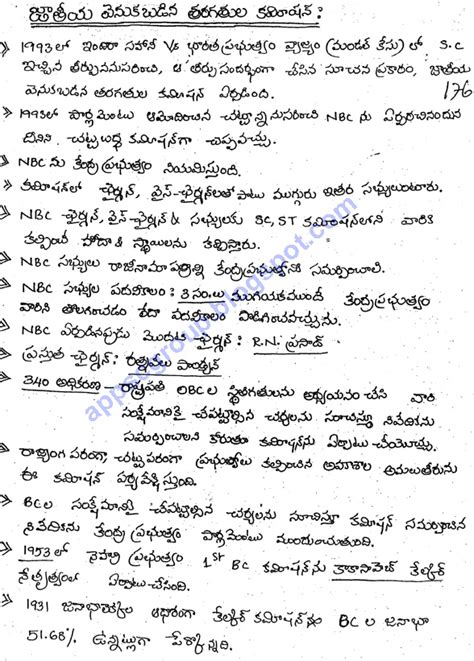 జాతీయ వెనుకబడిన తరగతుల కమీషన్ :
» 1993 లో ఇందిరా సహాని Vs భారత ప్రభుత్వం వ్యాజ్యం (మండల్ కేసు) లో, S.C
ఇచ్చిన తీర్పుననుసరించి, ఆ తీర్పు సందర్భంగా చేసిన సూచన ప్రకారం, జాతీయ
వెనుకబడిన తరగతుల కమిషన్ ఏర్పడింది.
176
» 1993లో పార్లమెంటు ఆమోదించిన చట్టాన్ననుసరించి NBC ను ఏర్పరచినందున
దీనిని చట్టబద్ధ కమిషన్‌గా చెప్పవచ్చు.
» NBC ను కేంద్రప్రభుత్వం నియమిస్తుంది.
» కమిషన్‌లో ఛైర్మన్, వైస్-ఛైర్మన్‌లతో పాటు ముగ్గురు ఇతర సభ్యులుంటారు.
» NBC ఛైర్మన్, వైస్-ఛైర్మన్ & సభ్యులకు SC, ST కమిషన్‌లోని వారికి
కల్పించే హోదా & స్థాయిలను కల్పిస్తారు.
» NBC సభ్యుల రాజీనామా పత్రాన్ని కేంద్రప్రభుత్వానికి సమర్పించాలి.
» NBC సభ్యుల పదవీకాలం : 3 సం.లు ముగియకముందే కేంద్రప్రభుత్వం
వారిని తొలగించడం లేదా పదవీకాలం పొడిగించవచ్చును.
» NBC ఏర్పడినపుడు మొదటి ఛైర్మన్ : R.N. ప్రసాద్
» ప్రస్తుత ఛైర్మన్ : రత్నవేలు పాండ్యన్
» 340 అధికరణ - రాష్ట్రపతి OBC ల స్థితిగతులను అధ్యయనం చేసి వారి
సంక్షేమానికై చేపట్టాల్సిన చర్యలను సూచిస్తూ నివేదికను
సమర్పించాలని కోరుతూ కమిషన్‌ను ఏర్పాటు చేయొచ్చు.
» రాజ్యాంగ పరంగా, చట్టపరంగా ప్రభుత్వం కల్పించిన అవకాశాల అమలుతీరును
ఈ కమిషన్ పర్యవేక్షిస్తుంది.
» BC ల సంక్షేమానికై చేపట్టాల్సిన చర్యలను సూచిస్తూ కమిషన్ సమర్పించిన
నివేదికను కేంద్రప్రభుత్వం పార్లమెంటు ముందుంచుతుంది.
» 1953 లో నెహ్రూ ప్రభుత్వం 1ST BC కమిషన్‌ను కాకాసాహెబ్ కేల్కర్
నేతృత్వంలో ఏర్పాటు చేసింది.
» 1931 జనాభాలెక్కల ఆధారంగా కేల్కర్ కమిషన్ BC ల జనాభా
51.68% ఉన్నట్లుగా పేర్కొన్నది.
appscgroup.blogspot.com